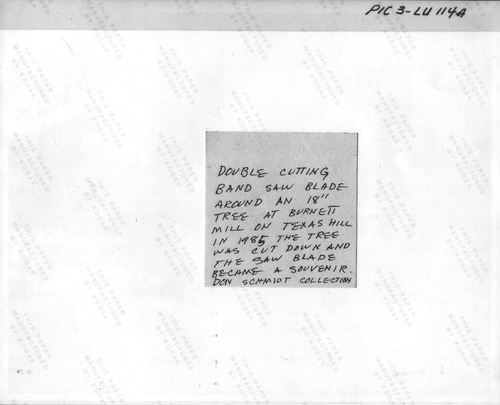 PIC 3-LU 114A
DOUBLE CUTTING
BAND SAW BLADE
AROUND AN 18"
TREE AT BURNETT
MILL ON TEXAS HILL
IN 1985 THE TREE
WAS CUT DOWN AND
THE SAW BLADE
BECAME A SOUVENIR.
DON SCHMIDT COLLECTION
THIS PAPER
MANUFACTURED
BY KODAK